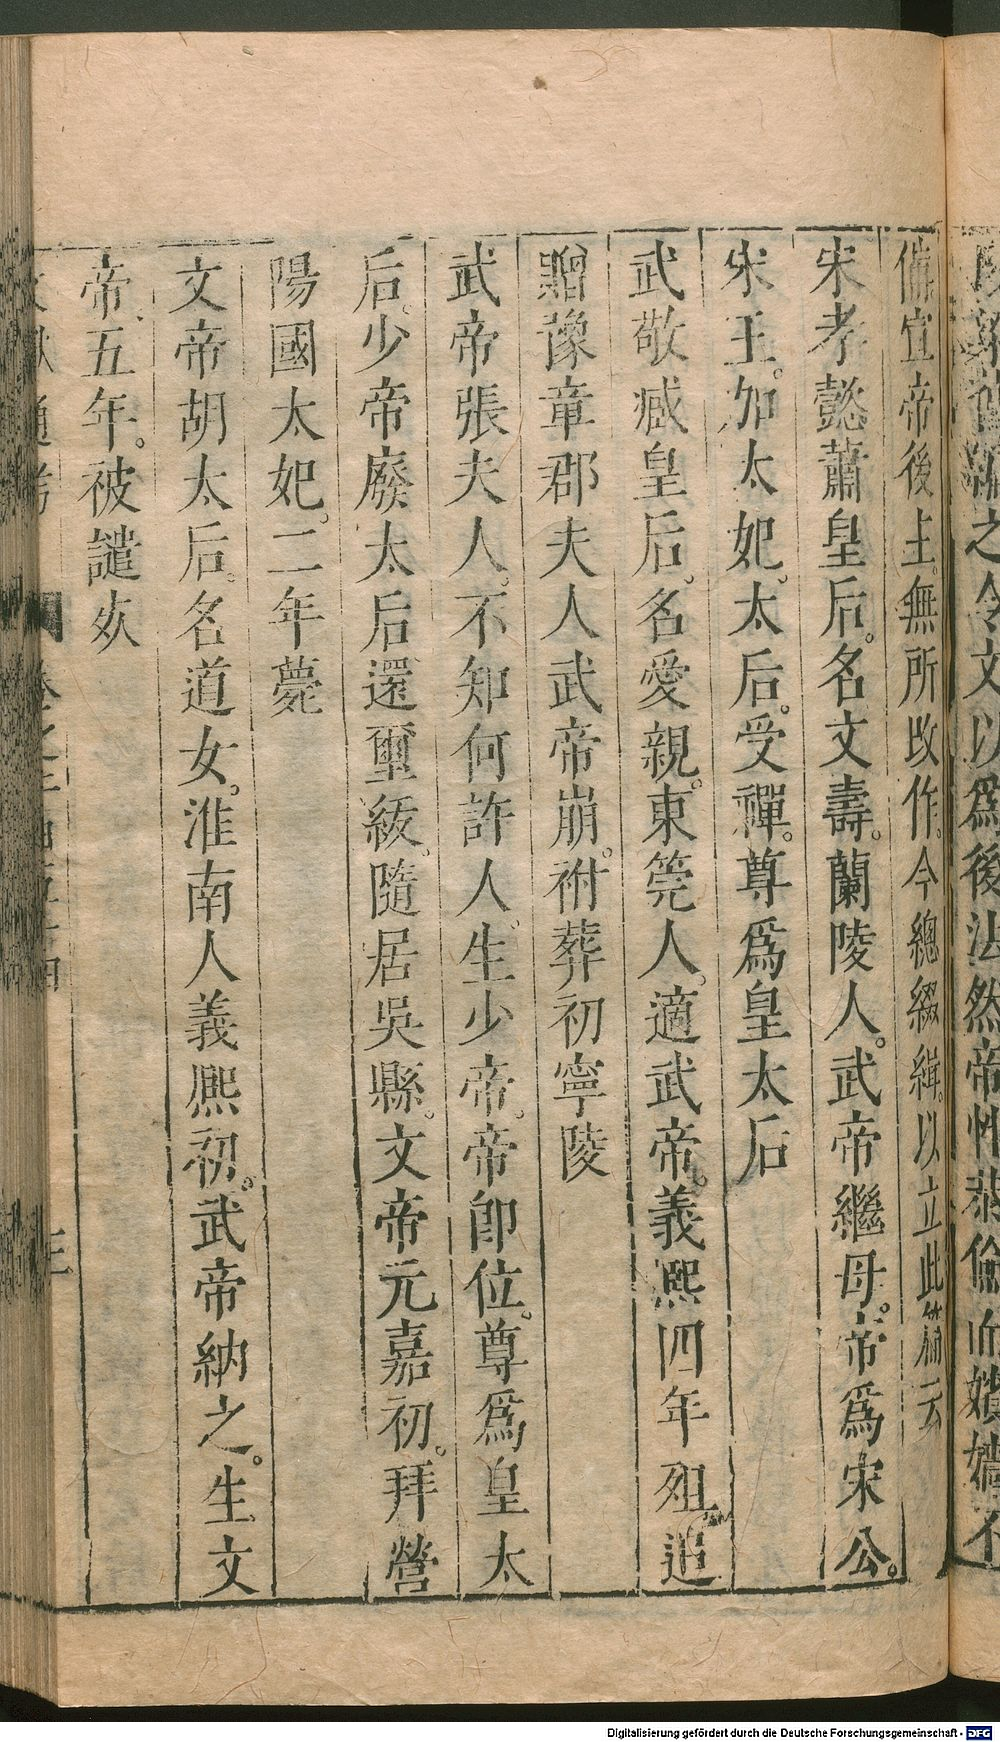 之令文以爲後法然帝性恭儉而嬪嬙不
備宣帝後上無所改作今總綴緝以立此篇云
宋孝懿蕭皇后名文壽蘭陵人武帝繼母帝爲宋公
宋王加太妃太后受禪尊爲皇太后
武敬臧皇后名愛親東筦人適武帝義熙四年殂追
贈豫章郡夫人武帝崩祔葬初寧陵
武帝張夫人不知何許人生少帝帝卽位尊爲皇太
后少帝廢太后還璽紱隨居吳縣文帝元嘉初拜營
陽國太妃二年薨
文帝胡太后名道女淮南人義熙初武帝納之生文
帝五年被譴殁
Digitalisierung gefördert durch die Deutsche Forschungsgemeinschaft - DFG